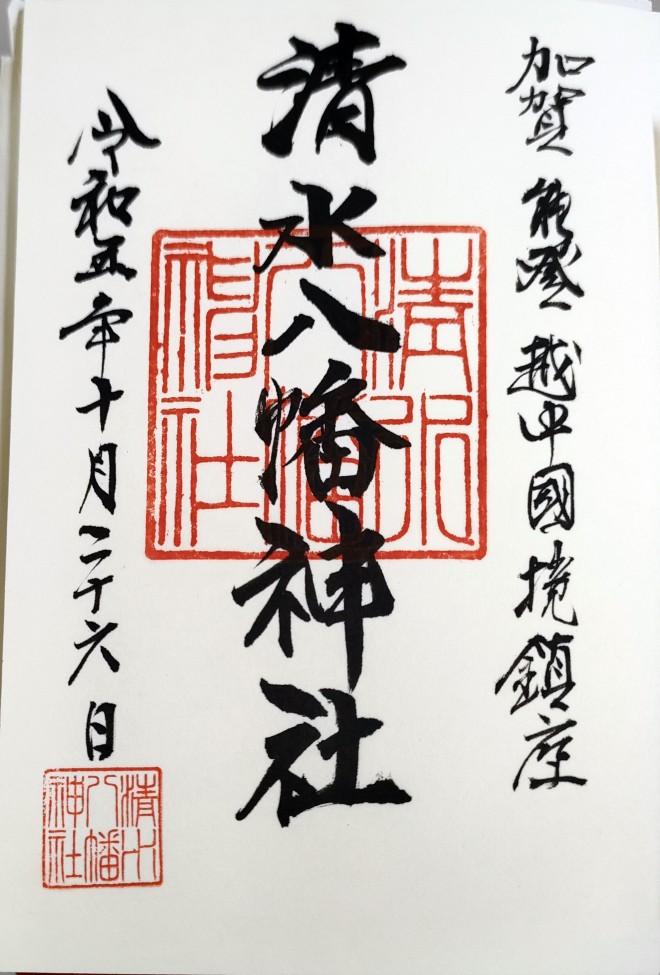 加賀 能登 越中國境鎮座
清水八幡神社
令和五年十月二十六日
清水
八幡
神社
清水
八幡
神社